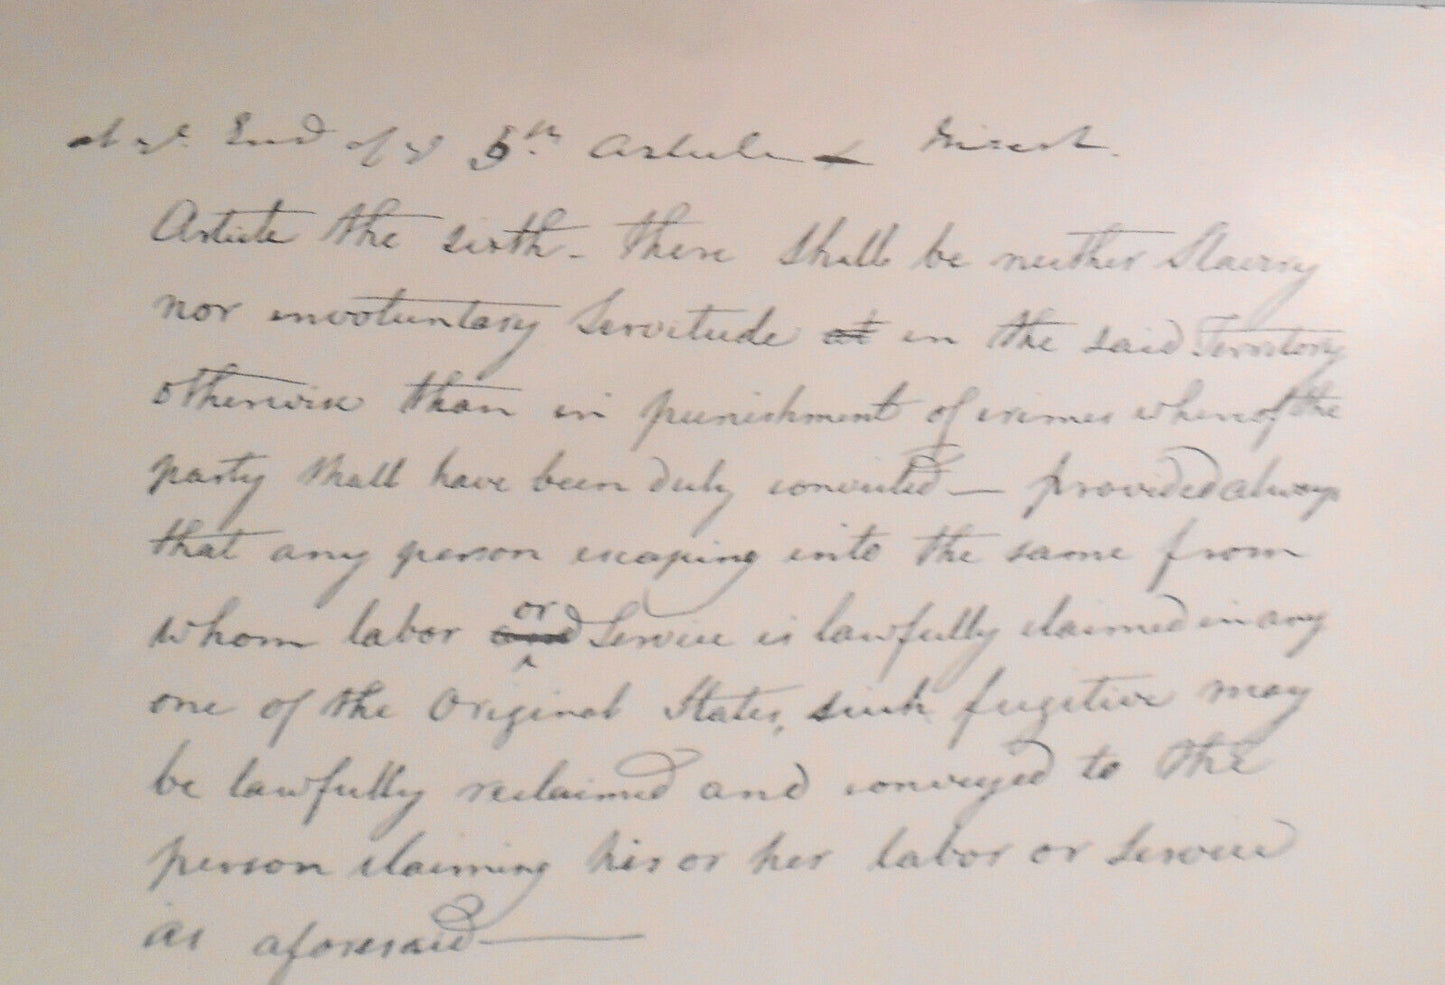 at ye. End of ye 5th. Article - Insert.
Article the sixth - there shall be neither Slavery
nor involuntary Servitude at in the said Territory
otherwise than in punishment of crimes whereof the
party shall have been duly convicted — provided always
that any person escaping into the same from
whom labor and or Service is lawfully claimed in any
one of the Original States, such fugitive may
be lawfully reclaimed and conveyed to the
person claiming his or her labor or service
as aforesaid —